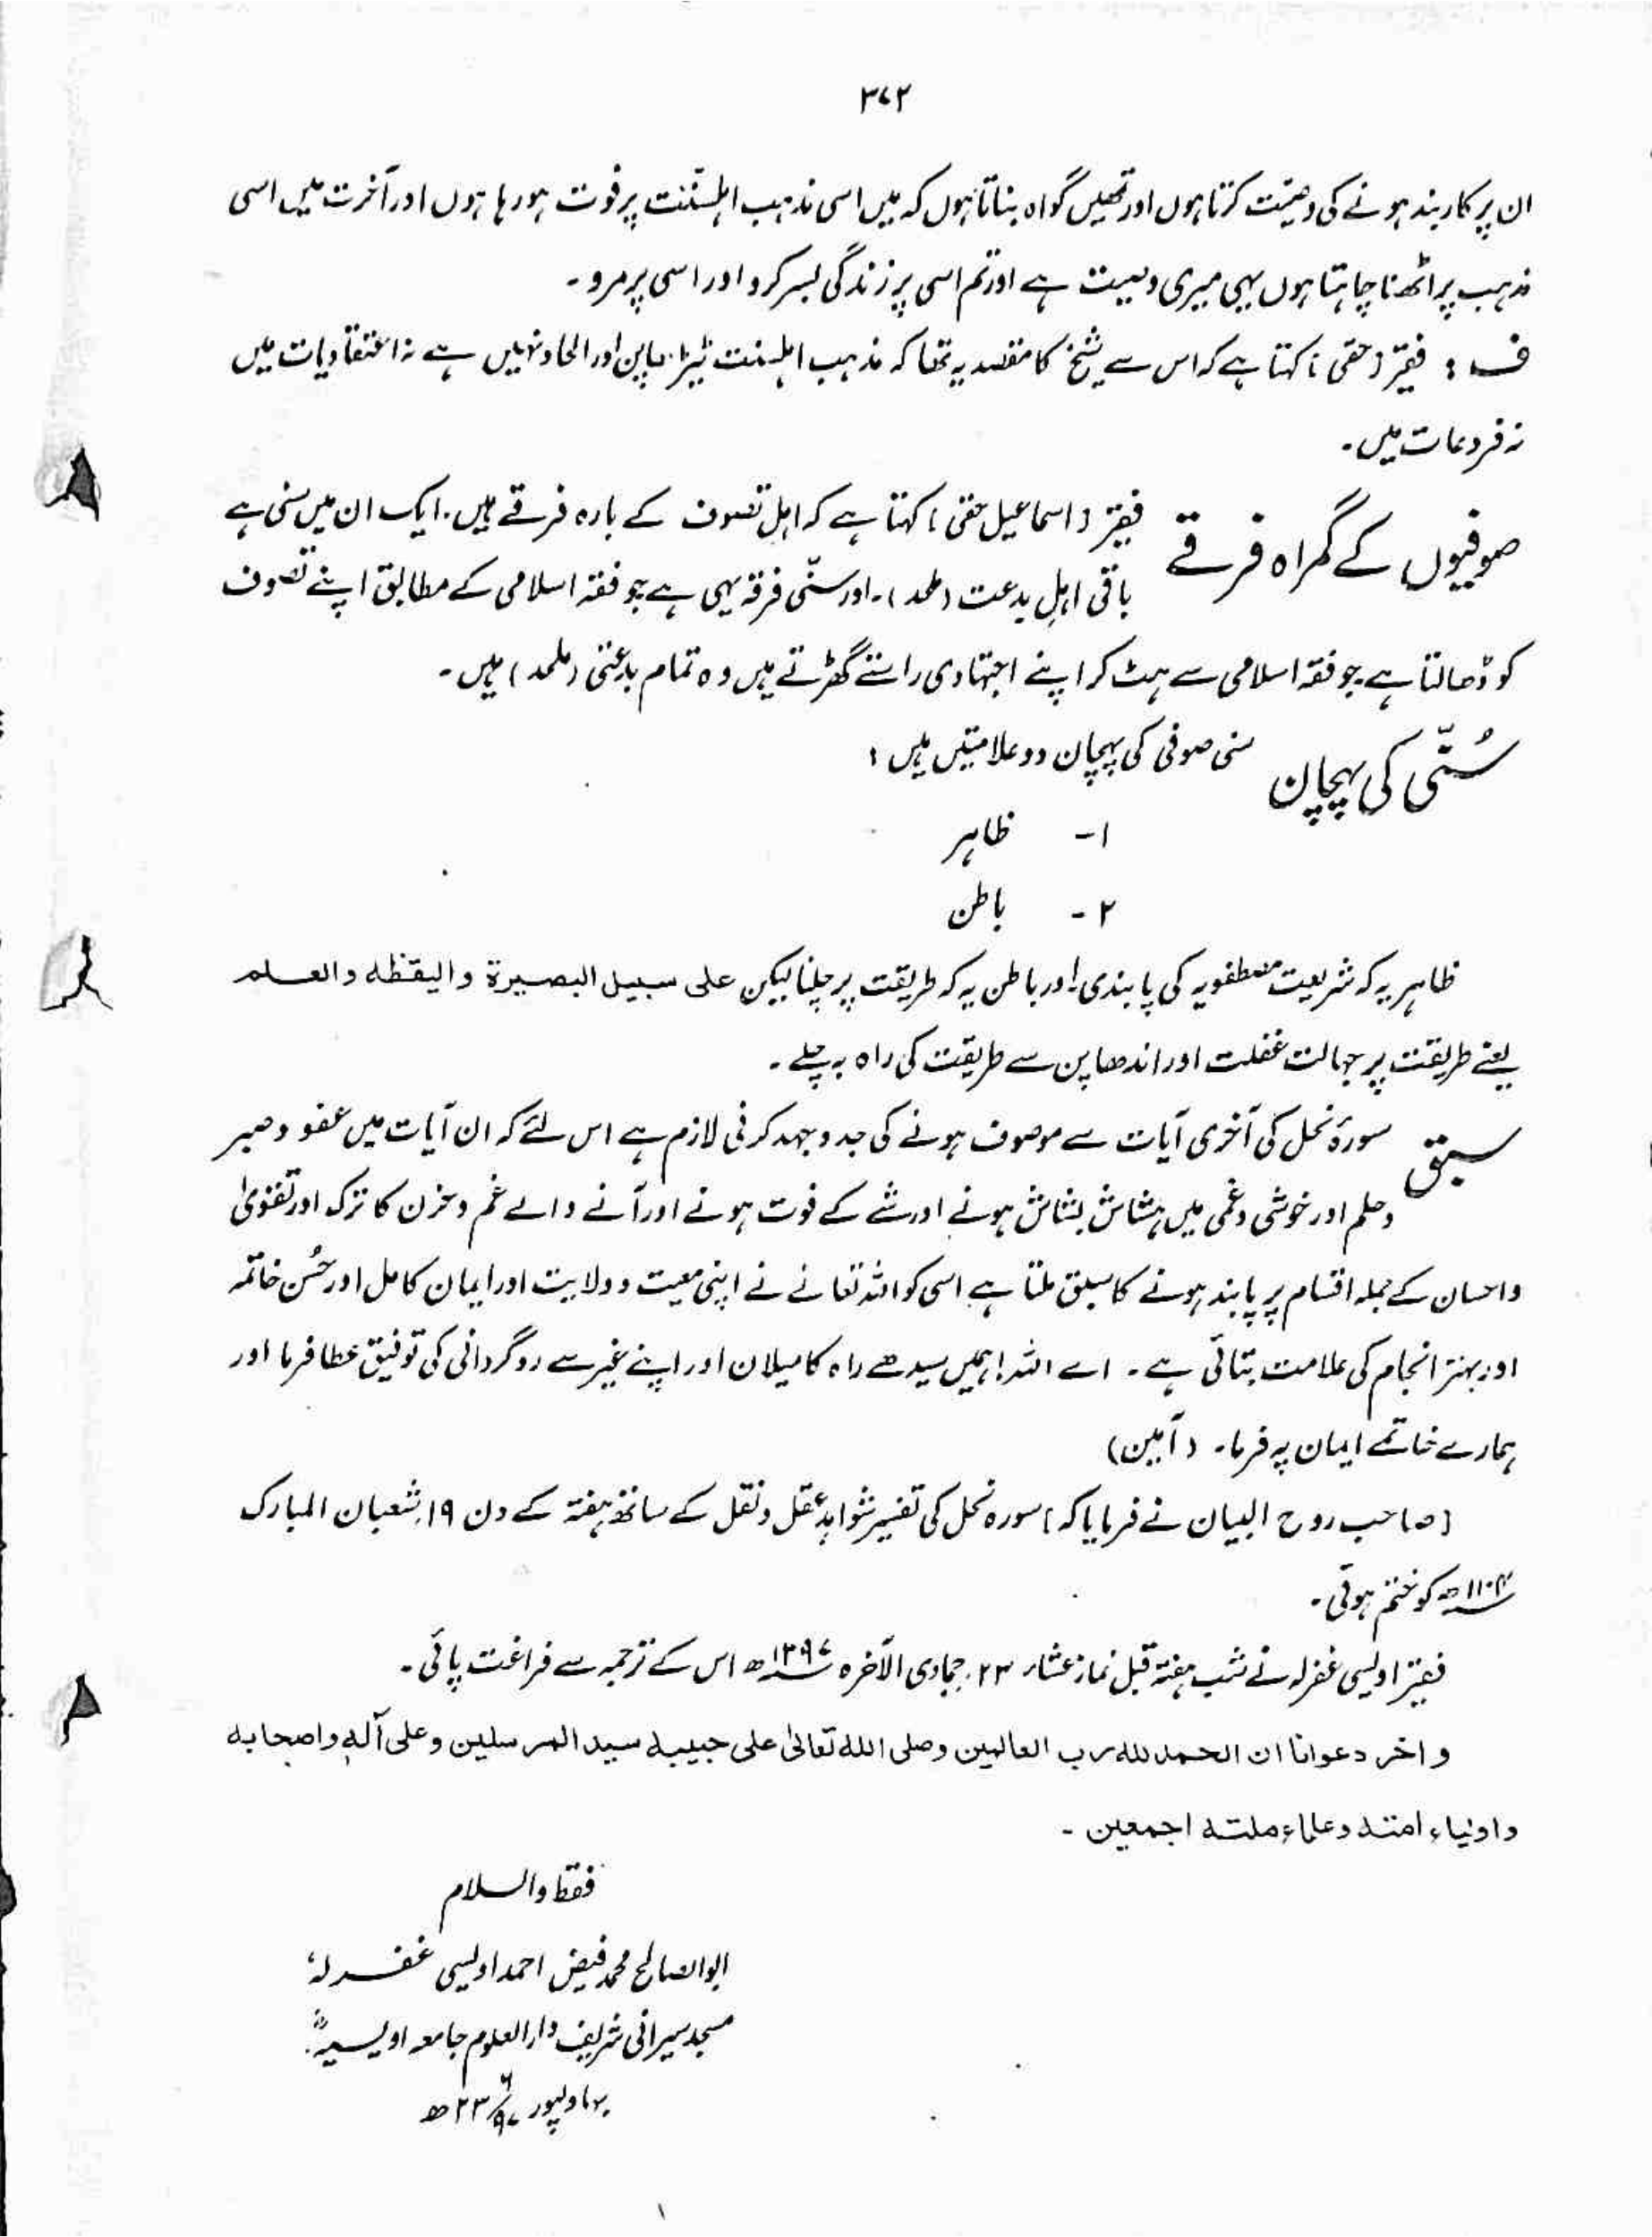 ۳۷۲
ان پر کاربند ہونے کی وصیّت کرتا ہوں اور تمھیں گواہ بناتا ہوں کہ میں اسی مذہب اہلسنّت پر فوت ہو رہا ہوں اور آخرت میں اسی
مذہب پر اٹھنا چاہتا ہوں یہی میری وصیت ہے اور تم اسی پر زندگی بسر کرو اور اسی پر مرو۔
ف : فقیر (حقی) کہتا ہے کہ اس سے شیخ کا مقصد یہ تھا کہ مذہب اہلسنت ٹیڑھاپن اور الحاد نہیں ہے نہ اعتقادیات میں
نہ فروعات میں۔
صوفیوں کے گمراہ فرقے فقیر (اسماعیل حقی) کہتا ہے کہ اہلِ تصوف کے بارہ فرقے ہیں۔ ایک ان میں سنی ہے
باقی اہلِ بدعت (ملحد)۔ اور سنّی فرقہ یہی ہے جو فقہ اسلامی کے مطابق اپنے تصوف
کو ڈھالتا ہے جو فقہ اسلامی سے ہٹ کر اپنے اجتہادی راستے گھڑتے ہیں وہ تمام بدعتی (ملحد) ہیں۔
سُنّی کی پہچان سنی صوفی کی پہچان دو علامتیں ہیں :
۱- ظاہر
۲- باطن
ظاہر یہ کہ شریعت مصطفویہ کی پابندی، اور باطن یہ کہ طریقت پر چلنا لیکن علی سبیل البصیرۃ والیقظہ والعلم
یعنے طریقت پر جہالت غفلت اور اندھاپن سے طریقت کی راہ نہ چلے۔
سبق سورۂ نحل کی آخری آیات سے موصوف ہونے کی جدوجہد کرنی لازم ہے اس لئے کہ ان آیات میں عفو و صبر
و حلم اور خوشی و غمی میں ہشاش بشاش ہونے اور شے کے فوت ہونے اور آنے والے غم و حزن کا ترک اور تقویٰ
و احسان کے جملہ اقسام پر پابند ہونے کا سبق ملتا ہے اسی کو اللہ تعالے نے اپنی معیت و ولایت اور ایمان کامل اور حُسن خاتمہ
اور بہتر انجام کی علامت بتائی ہے۔ اے اللہ! ہمیں سیدھے راہ کا میلان اور اپنے غیر سے روگردانی کی توفیق عطا فرما اور
ہمارے خاتمے ایمان پہ فرما۔ (آمین)
(صاحب روح البیان نے فرمایا کہ) سورہ نحل کی تفسیر شواہد عقل و نقل کے ساتھ ہفتہ کے دن ۱۹ شعبان المبارک
۱۱۰۴ھ کو ختم ہوئی۔
فقیر اویسی غفرلہ نے شب ہفتہ قبل نماز عشاء ۲۳ جمادی الآخرہ ۱۳۹۷ھ اس کے ترجمہ سے فراغت پائی۔
و اٰخر دعوانا ان الحمد للہ رب العالمین وصلی اللہ تعالیٰ علی حبیبہ سید المرسلین وعلی آلہٖ واصحابہ
واولیاء امتہ وعلماء ملتہ اجمعین۔
فقط والسلام
ابوالصالح محمد فیض احمد اویسی غفرلہٗ
مسجد سیرانی شریف دارالعلوم جامعہ اویسیہ
بہاولپور ۲۳/۶/۹۷ھ